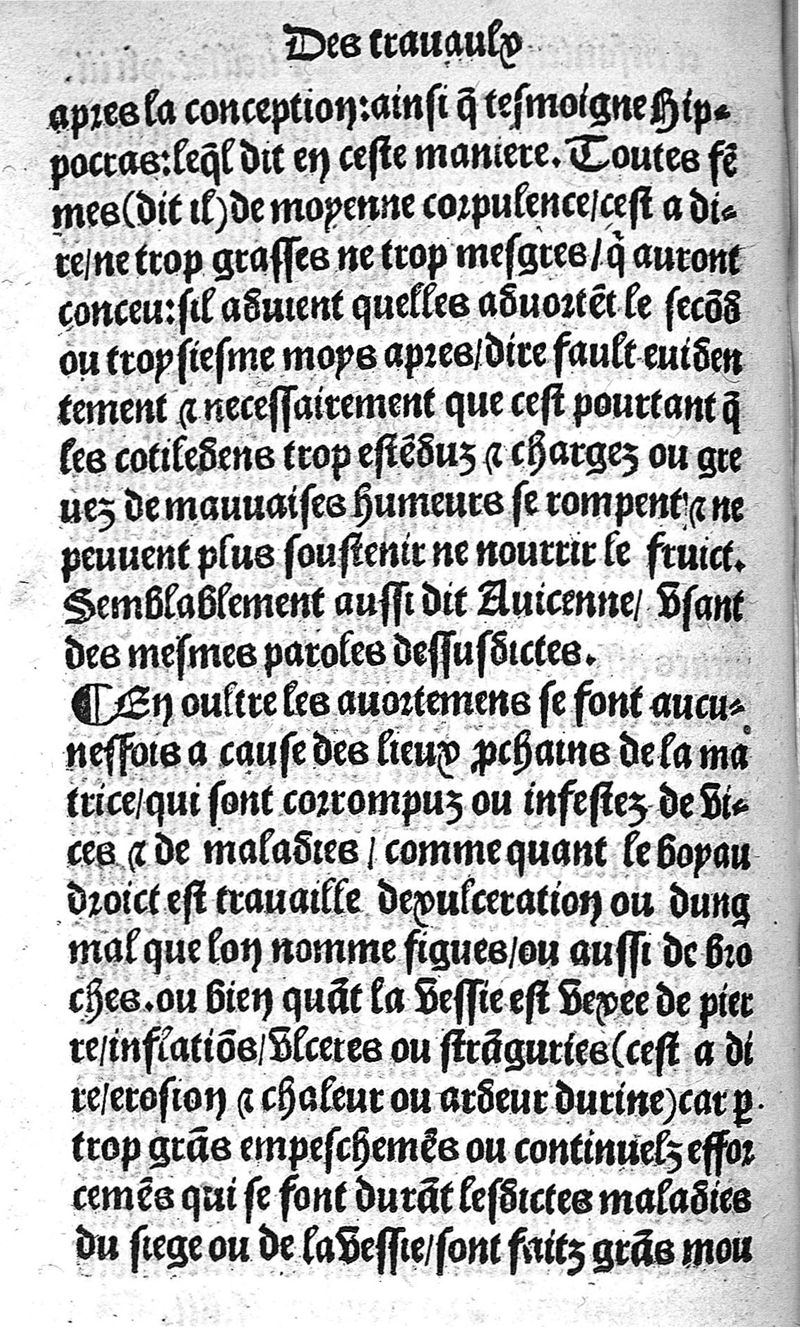 Des trauaulx
apres la conception:ainsi q̃ tesmoigne Hip⸗
pocras:leq̃l dit en ceste maniere. Toutes fẽ
mes(dit il)de moyenne corpulence/cest a di⸗
re/ne trop grasses ne trop mesgres/q̇ auront
conceu:sil aduient quelles aduortẽt le secõd
ou troysiesme moys apres/dire fault euiden
tement ⁊ necessairement que cest pourtant q̃
les cotiledens trop estẽduz ⁊ chargez ou gre
uez de mauuaises humeurs se rompent ⁊ ne
peuuent plus soustenir ne nourrir le fruict.
Semblablement aussi dit Auicenne/ vsant
des mesmes paroles dessusdictes.
¶En oultre les auortemens se font aucu⸗
nesfois a cause des lieux ꝓchains de la ma
trice/qui sont corrompuz ou infestez de vi⸗
ces ⁊ de maladies / comme quant le boyau
droict est trauaille dexulceration ou dung
mal que lon nomme figues/ou aussi de bro
ches.ou bien quãt la vessie est vexee de pier
re/inflatiõs/vlceres ou strãguries(cest a di
re/erosion ⁊ chaleur ou ardeur durine)car ꝑ
trop grãs empeschemẽs ou continuelz effor
cemẽs qui se font durãt lesdictes maladies
du siege ou de la vessie/sont faitz grãs mou